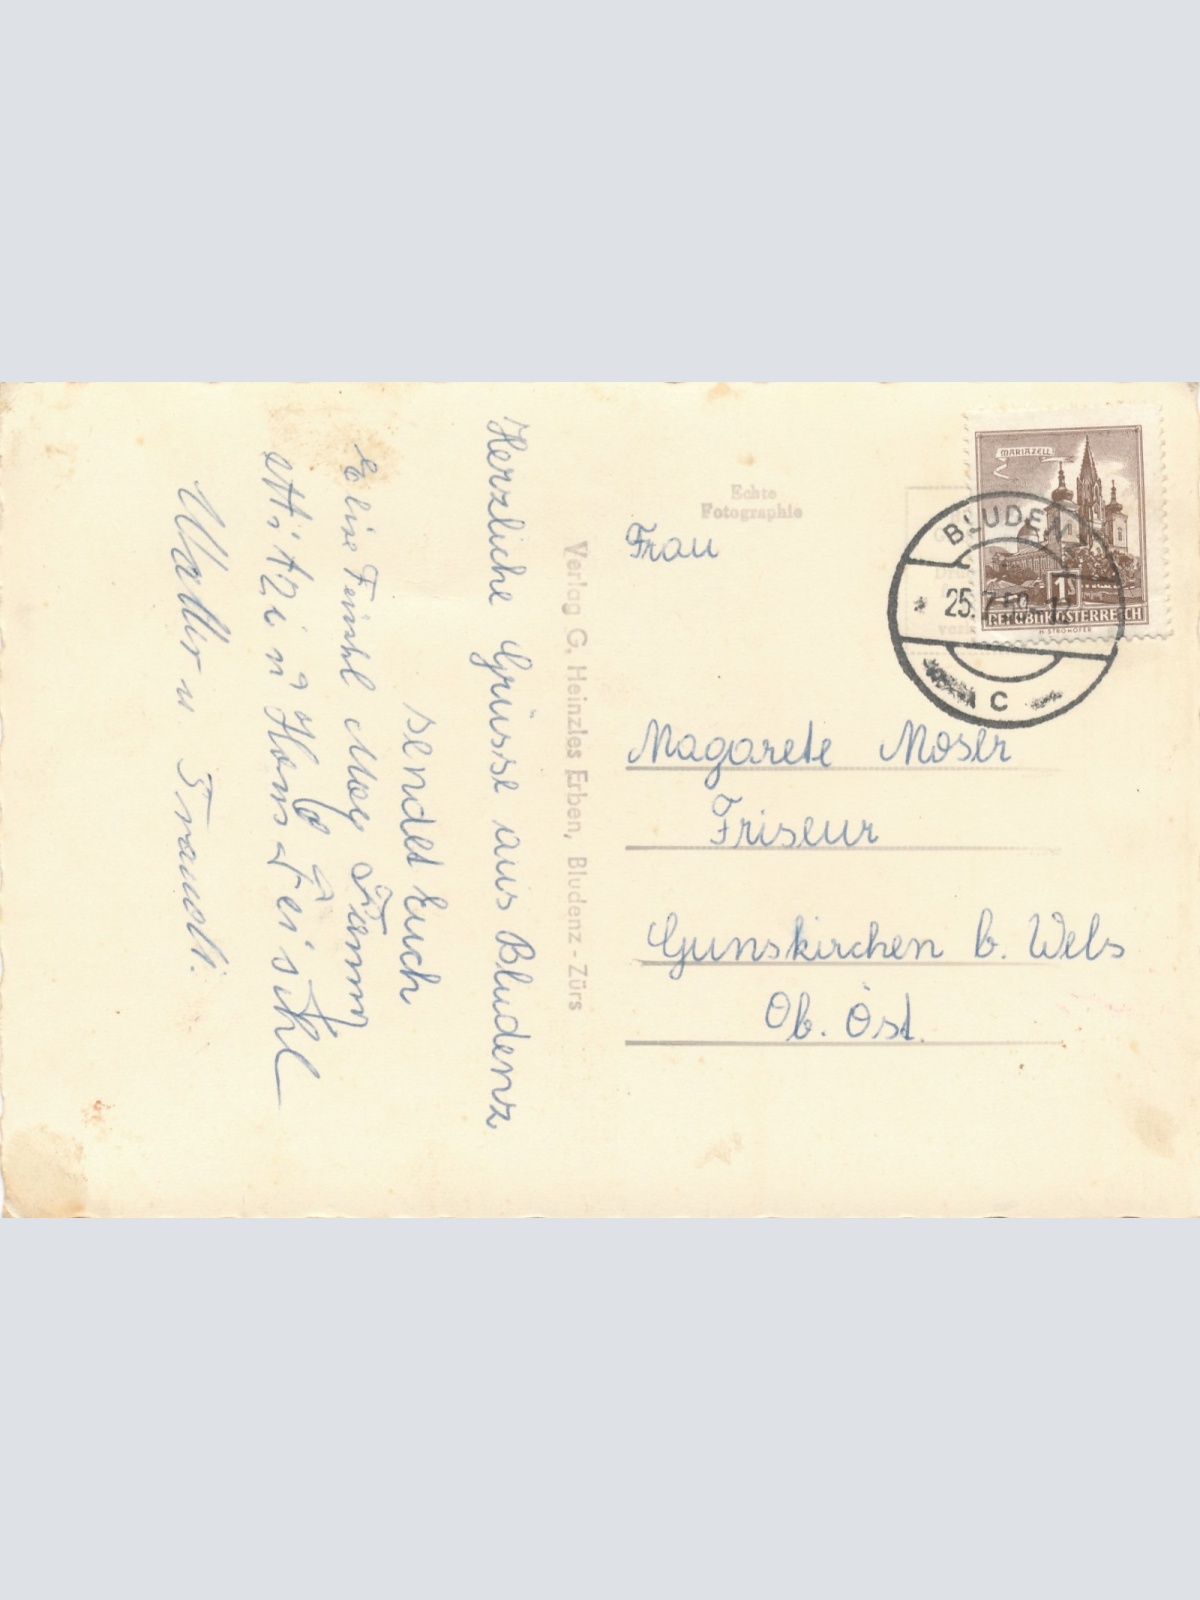 Herzliche Grüsse aus Bludenz
sendet Euch
Elise
Mitzi u. Hans
Walter u. Traudl.
Verlag G. Heinzles Erben, Bludenz - Zürs
Echte
Fotographie
MARIAZELL
1S
REPUBLIK ÖSTERREICH
H. STROHOFER
BLUDENZ
25.7.59-12
C
Frau
Magarete Moser
Friseur
Gunskirchen b. Wels
Ob. Öst.